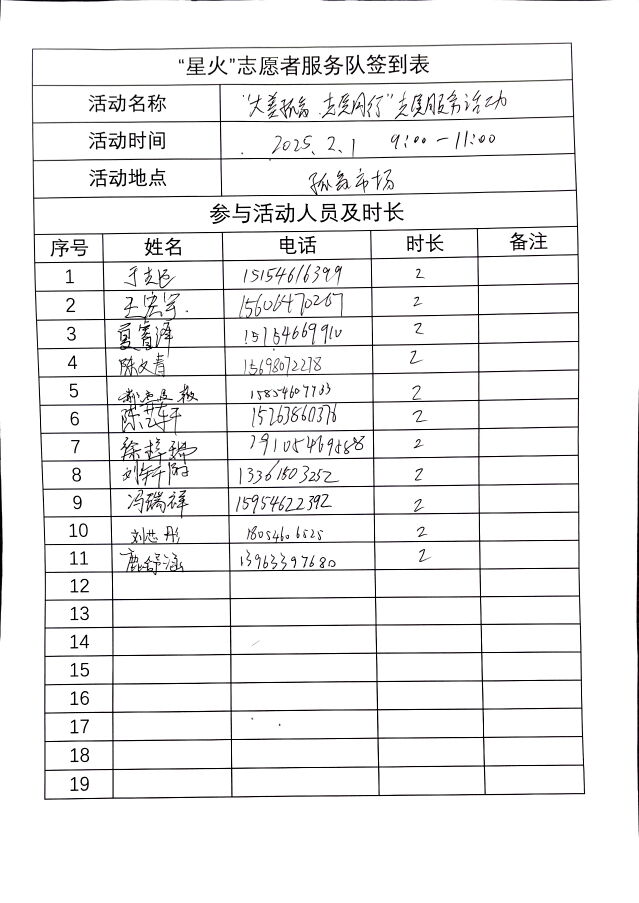 “星火”志愿者服务队签到表
活动名称 “大美孤岛.志愿同行”志愿服务活动
活动时间 2025.2.1 9:00-11:00
活动地点 孤岛市场
参与活动人员及时长
序号 姓名 电话 时长 备注
1 15154616399 2
2 王宏宇. 15606470267 2
3 夏睿泽 15154669910 2
4 陈文青 15698072278 2
5 15854607733 2
6 15263860376 2
7 徐梓瑞 2
8 刘轩 13361503252 2
9 冯瑞祥 15954622392 2
10 刘芯彤 18054606525 2
11 鹿舒涵 13963397680 2
12
13
14
15
16
17
18
19